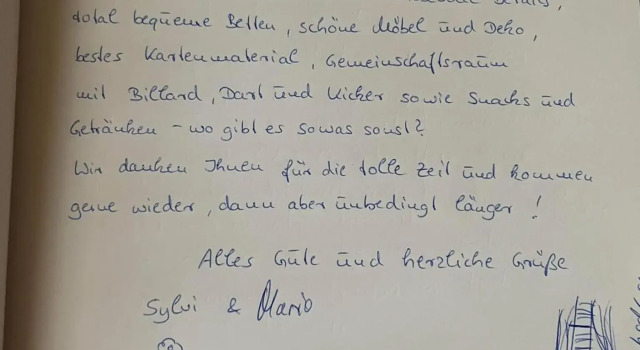 total bequeme Betten, schöne Möbel und Deko,
bestes Kartenmaterial, Gemeinschaftsraum
mit Billard, Dart und Kicker sowie Snacks und
Getränken - wo gibt es sowas sonst?
Wir danken Ihnen für die tolle Zeit und kommen
gerne wieder, dann aber unbedingt länger!
Alles Gute und herzliche Grüße
Sylvi & Mario